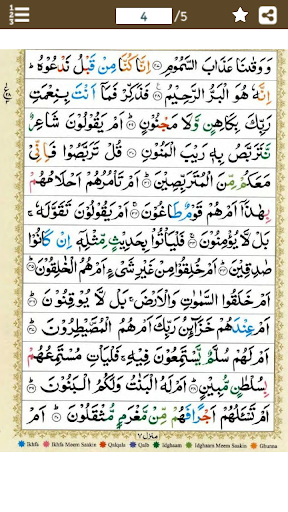 4 /5
وَوَقٰىنَا عَذَابَ السَّمُوْمِ ﴿۲۷﴾ اِنَّا كُنَّا مِنْ قَبْلُ نَدْعُوْهُ ؕ
اِنَّهٗ هُوَ الْبَرُّ الرَّحِيْمُ ﴿۲۸﴾ فَذَكِّرْ فَمَاۤ اَنْتَ بِنِعْمَتِ
رَبِّكَ بِكَاهِنٍ وَّلَا مَجْنُوْنٍ ﴿۲۹﴾ اَمْ يَقُوْلُوْنَ شَاعِرٌ
نَّتَرَبَّصُ بِهٖ رَيْبَ الْمَنُوْنِ ﴿۳۰﴾ قُلْ تَرَبَّصُوْا فَاِنِّيْ
مَعَكُمْ مِّنَ الْمُتَرَبِّصِيْنَ ﴿۳۱﴾ اَمْ تَاْمُرُهُمْ اَحْلَامُهُمْ
بِهٰذَاۤ اَمْ هُمْ قَوْمٌ طَاغُوْنَ ﴿۳۲﴾ اَمْ يَقُوْلُوْنَ تَقَوَّلَهٗ ۚ
بَلْ لَّا يُؤْمِنُوْنَ ﴿۳۳﴾ فَلْيَاْتُوْا بِحَدِيْثٍ مِّثْلِهٖۤ اِنْ كَانُوْا
صٰدِقِيْنَ ﴿۳۴﴾ اَمْ خُلِقُوْا مِنْ غَيْرِ شَيْءٍ اَمْ هُمُ الْخٰلِقُوْنَ ﴿۳۵﴾
اَمْ خَلَقُوا السَّمٰوٰتِ وَالْاَرْضَ ۚ بَلْ لَّا يُوْقِنُوْنَ ﴿۳۶﴾
اَمْ عِنْدَهُمْ خَزَآئِنُ رَبِّكَ اَمْ هُمُ الْمُصَۜيْطِرُوْنَ ﴿۳۷﴾
اَمْ لَهُمْ سُلَّمٌ يَّسْتَمِعُوْنَ فِيْهِ ۚ فَلْيَاْتِ مُسْتَمِعُهُمْ
بِسُلْطٰنٍ مُّبِيْنٍ ﴿۳۸﴾ اَمْ لَهُ الْبَنٰتُ وَلَكُمُ الْبَنُوْنَ ﴿۳۹﴾
اَمْ تَسْئَلُهُمْ اَجْرًا فَهُمْ مِّنْ مَّغْرَمٍ مُّثْقَلُوْنَ ﴿۴۰﴾ اَمْ
منزل ۷
Ikhfa Ikhfa Meem Saakin Qalqala Qalb Idghaam Idghaam Meem Saakin Ghunna